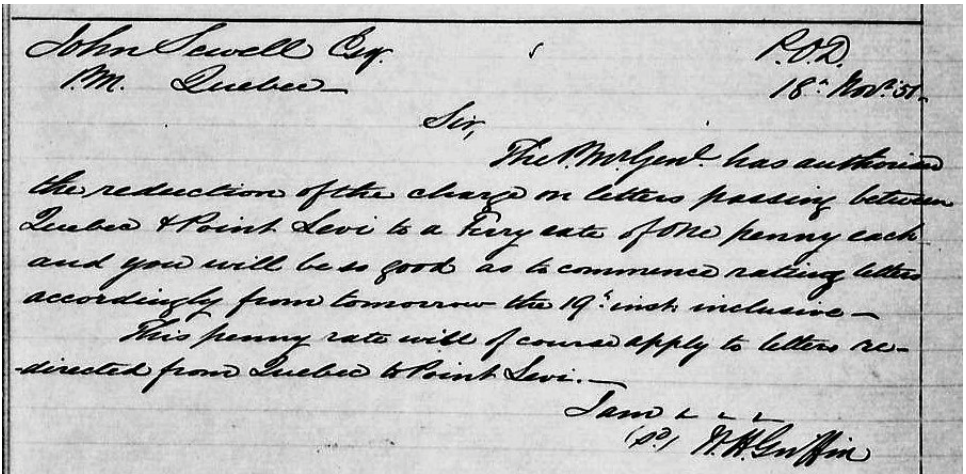 John Sewell Esq. P.O.D.
P.M. Quebec— 18th Novr. 51—
Sir,
The P.M.Genl. has authorised
the reduction of the charge on letters passing between
Quebec & Point Levi to a Ferry rate of One penny each
and you will be so good as to commence rating letters
accordingly from tomorrow the 19th inst. inclusive—
This penny rate will of course apply to letters re-
-directed from Quebec to Point Levi.—
I am
(sd) W.H.Griffin